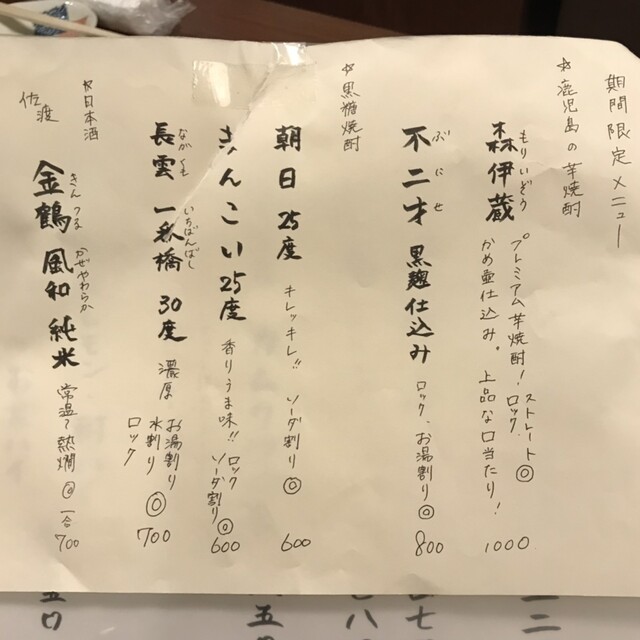 期間限定メニュー
☆鹿児島の芋焼酎
もりいぞう
森伊蔵
プレミアム芋焼酎!
ストレート◎
ロック
かめ壺仕込み。上品な口当たり!
1000
ぶにせ
不二才 黒麹仕込み
ロック、お湯割り◎
800
☆黒糖焼酎
朝日 25度
キレッキレ!!
ソーダ割り◎
600
きんこい 25度
香りうま味!!
ロック
ソーダ割り◎
600
ながくも いちばんばし
長雲 一番橋 30度
濃厚
お湯割り
水割り◎
ロック
700
☆日本酒
佐渡
きんつる かぜやわらか
金鶴 風和 純米
常温〜熱燗◎
一合
700